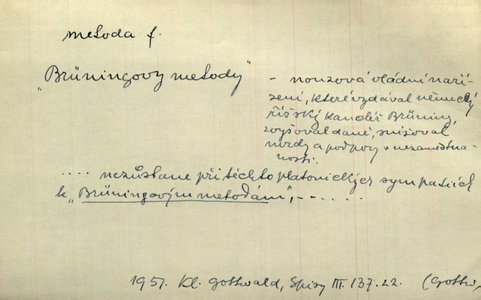 metoda f.
„Brüningovy metody"
- nouzová vládní naří-
zení, které vydával německý
říšský kancléř Brüning,
zvyšoval daně, snižoval
mzdy a podpory v nezaměstna-
nosti.
.... nezůstane při těchto platonických sympatiích
k „Brüningovým metodám", - - .....
1951. Kl. Gottwald, Spisy III. 137. 22. (Gottw.